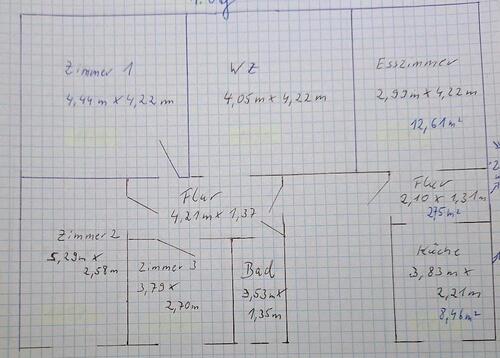 Zimmer 1
4,44m x 4,22m
WZ
4,05m x 4,22m
Esszimmer
2,99m x 4,22m
12,61m²
Flur
4,21m x 1,37
Flur
2,10 x 1,31m
2,75m²
Zimmer 2
5,29m x
2,58m
Zimmer 3
3,79 x
2,70m
Bad
3,53m x
1,35m
Küche
3,83m x
2,21m
8,46m²